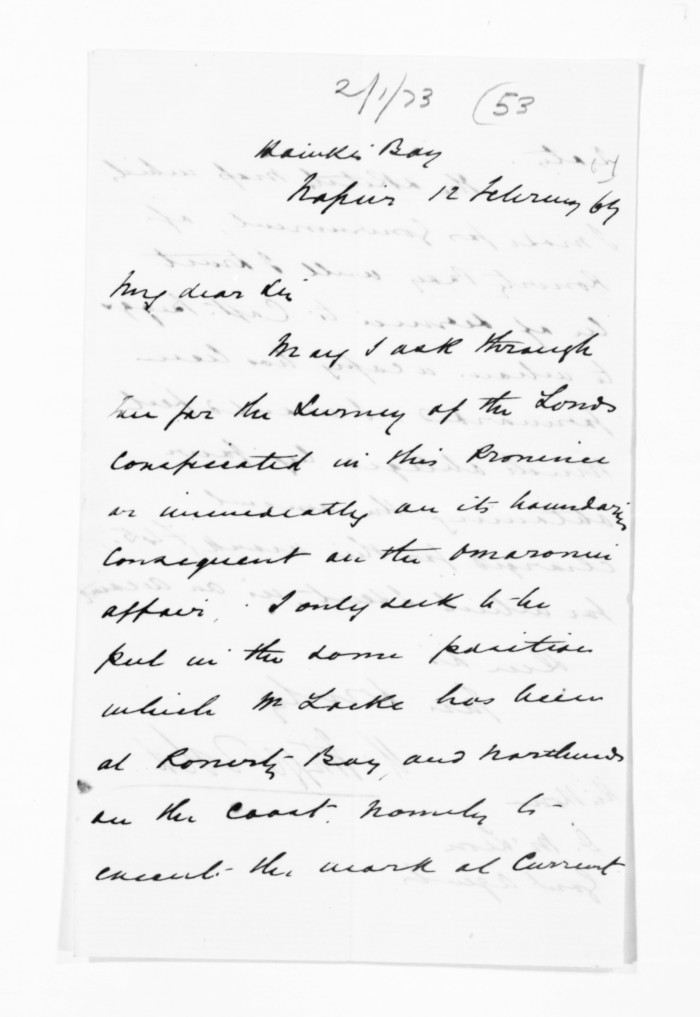 2/1/73 (53
Hawke's Bay
Napier 12 February 67
My dear Sir
May I ask through
you for the Survey of the Lands
Confiscated in this Province
or immediately on its boundaries
Consequent on the Omaronui
affair. I only seek to be
put in the same position
which Mr Locke has been
at Poverty Bay, and Northwards
on the Coast. Namely to
execute the work at Current